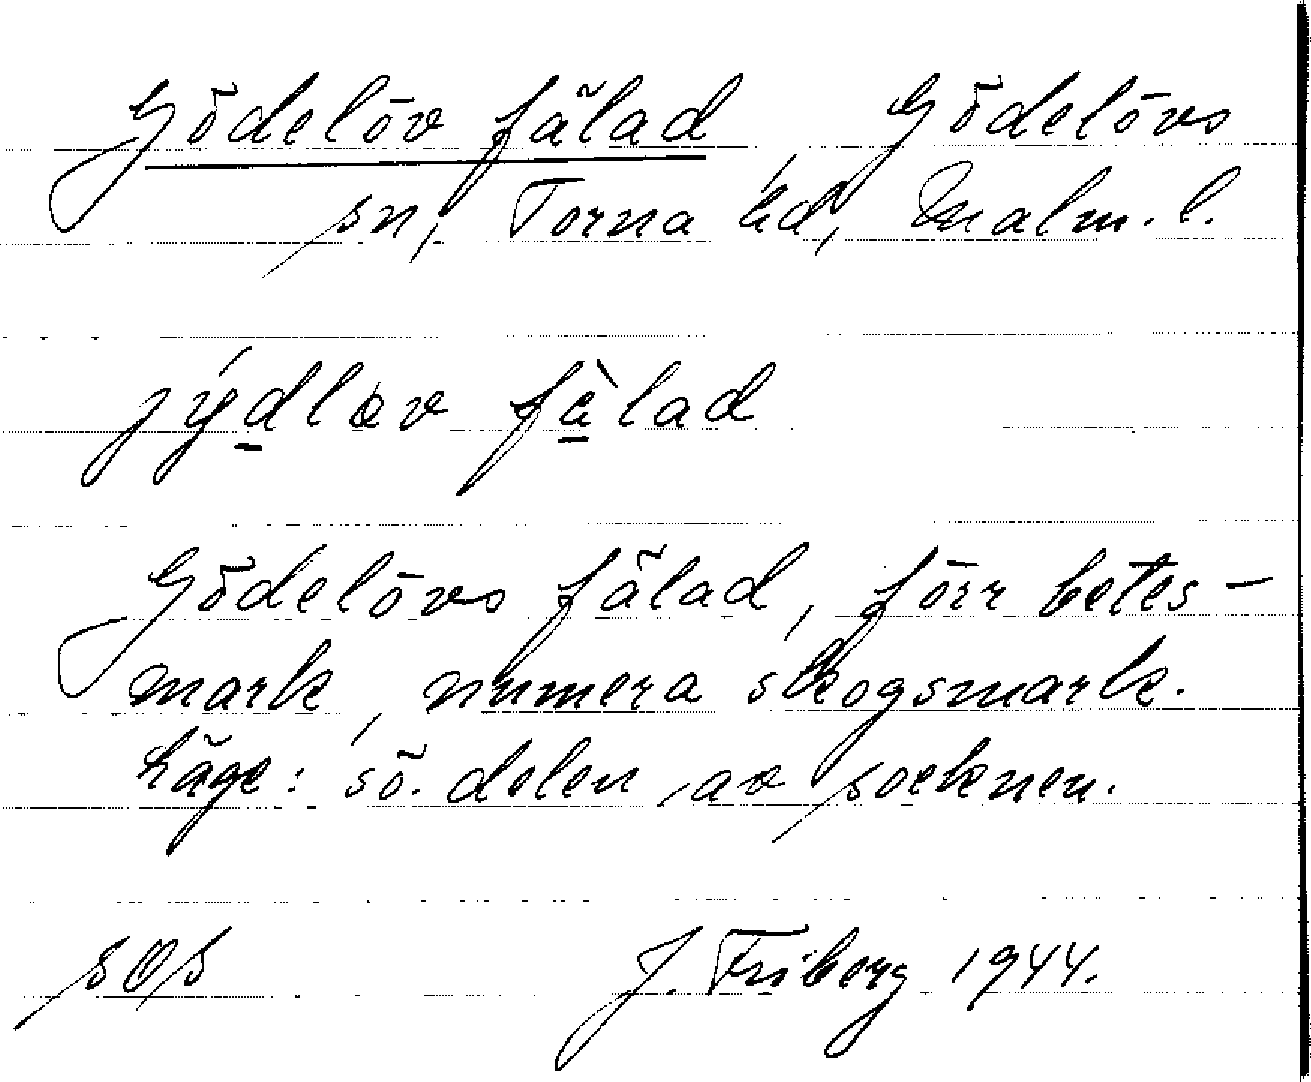 Gödelöv fälad, Gödelövs
sn, Torna hd, Malm. l.
jýdlöv fàlad
Gödelövs fälad, förr betes-
mark, numera skogsmark.
Läge: sö. delen av socknen.
J. Friberg 1944.